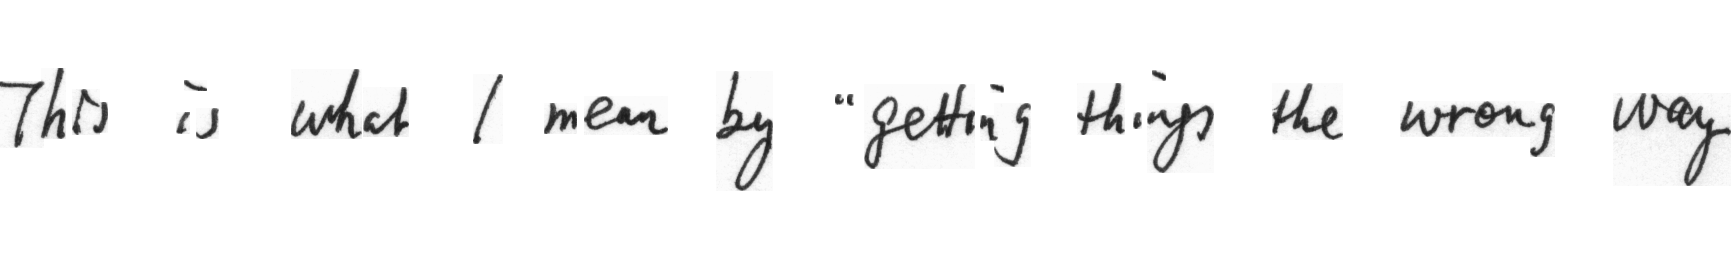 This is what I mean by "getting things the wrong way